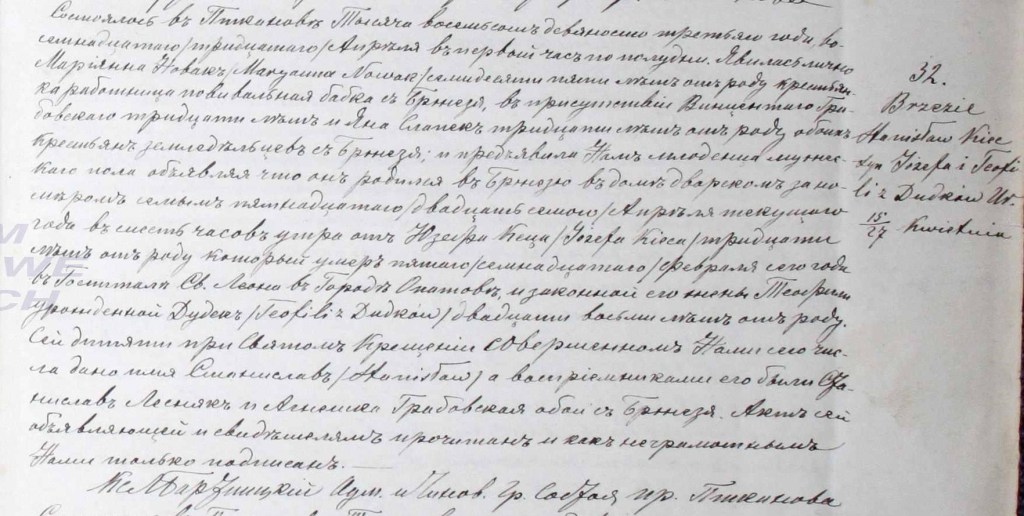 Состоялось въ Пткановѣ Тысяча восемьсотъ девяносто третьяго года, во-
семнадцатаго /тридцатаго/ Апрѣля въ первой часъ по полудни. Явилась лично
Маріянна Новакъ /Maryanna Nowak/ семидесяти пяти лѣтъ отъ роду крестьян-
ка работница повивальная бабка съ Брюзезя, въ присутствіи Винцентаго Гра-
бовскаго тридцати лѣтъ и Яна Слапекъ тридцати лѣтъ отъ роду, обоихъ
крестьянъ земледѣльцевъ съ Брюзезя; и предъявила Намъ младенца мужес-
каго пола объявляя что онъ родился въ Брюзезю въ домѣ дворскомъ за но-
меромъ семымъ пятнадцатаго /двадцать семого/ Апрѣля текущаго
года въ шесть часовъ утра отъ Юзефа Кеца /Józefa Kieca/ тридцати
лѣтъ отъ роду который умеръ пятаго /семнадцатаго/ февраля сего года
въ Госпиталѣ Св. Леона въ Городѣ Опатовѣ, и законной его жены Теофили
урожденной Дудекъ /Teofili z Dudków/ двадцати восьми лѣтъ отъ роду.
Сей дитяти при Святомъ Крещеніи совершенномъ Нами сего чис-
ла дано имя Станиславъ /Stanisław/ а воспріемниками его были Ста-
ниславъ Леснякъ и Агнешка Грабовская обои съ Брюзезя. Актъ сей
объявляющей и свидѣтелямъ прочитанъ и какъ неграмотнымъ
Нами только подписанъ.
Адм. и Чинов. Гр. Сост. пр. Птканова
32.
Brzezie
Stanisław Kiec
syn Józefa i Teofi-
li z Dudków Ur.
15/27 Kwietnia